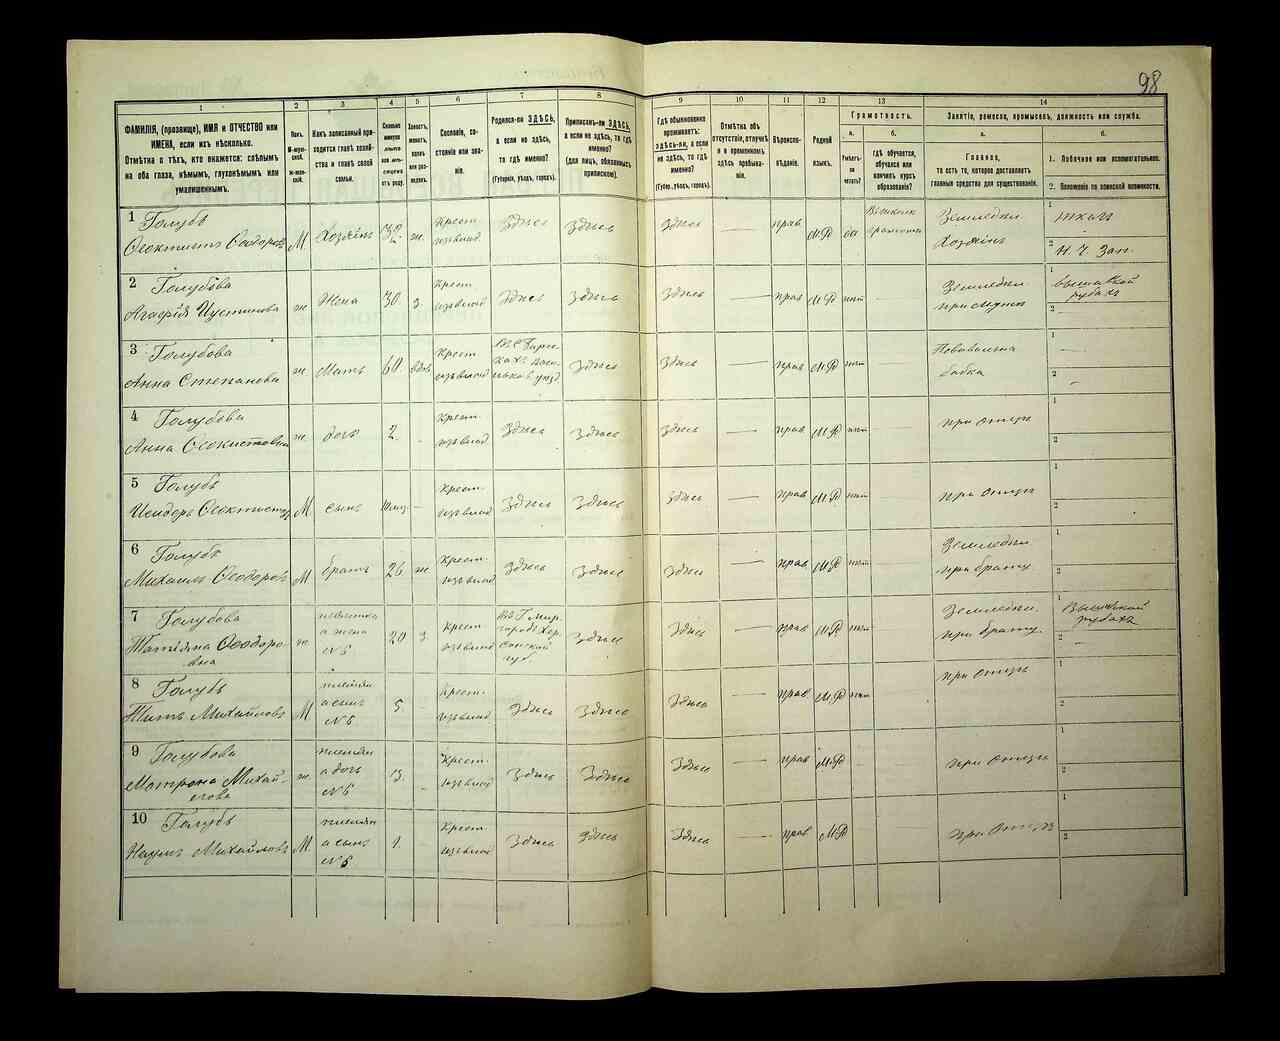 98
1 2 3 4 5 6 7 8 9 10 11 12 13 14
ФАМИЛІЯ, (прозвище), ИМЯ и ОТЧЕСТВО или
ИМЕНА, если ихъ нѣсколько.
Отмѣтка о тѣхъ, кто окажется: слѣпымъ
на оба глаза, нѣмымъ, глухонѣмымъ или
умалишеннымъ.
Полъ.
М-мужской.
Ж-женскій.
Какъ записанный приходится главѣ хозяйства и главѣ своей
семьи.
Сословіе, состояніе или званіе.
Родился-ли ЗДѢСЬ,
а если не здѣсь,
то гдѣ именно?
(Губернія, уѣздъ, городъ).
Приписанъ-ли ЗДѢСЬ,
а если не здѣсь, то гдѣ
именно?
(для лицъ, обязанныхъ
припискою).
Гдѣ обыкновенно
проживаетъ:
здѣсь-ли, а если
не здѣсь, то гдѣ
именно?
(Губер., уѣздъ, городъ).
Отмѣтка объ
отсутствіи, отлучкѣ
и о временномъ
здѣсь пребываніи.
Вѣроисповѣданіе.
Родной
языкъ.
Грамотность.
а. б.
Умѣетъ-ли
читать?
гдѣ обучается,
обучался или
кончилъ курсъ
образованія?
Занятіе, ремесло, промыселъ, должность или служба.
а. б.
Главное,
то есть то, которое доставляетъ
главныя средства для существованія.
1. Побочное или вспомогательное.
2. Положеніе по воинской повинности.
1 Голубъ
Ѳеоктистъ Ѳеодоровъ М Хозяинъ ж. Крест. Здѣсь Здѣсь Здѣсь — прав М.Р да Земледѣл. Хозяинъ 1 ткачъ 2 Н. Ч. Зап.
2 Голубова
Агафія Иустинова ж Жена 30 з Крест. Здѣсь Здѣсь Здѣсь — прав М.Р нѣт Земледѣл. при мужѣ 1 2
3 Голубова
Анна Степанова ж Мать 60 вдов Крест. Здѣсь Здѣсь — прав М.Р нѣт Повивальна бабка 1 — 2 —
4 Голубова
Анна Ѳеоктистовна ж дочь 2 - Крест. Здѣсь Здѣсь Здѣсь — прав М.Р нѣт при отцѣ 1 2
5 Голубъ
Исидоръ М сынъ — Крест. Здѣсь Здѣсь Здѣсь — прав М.Р нѣт при отцѣ 1 2
6 Голубъ
Михаилъ Ѳеодоровъ М братъ 26 ж Крест. Здѣсь Здѣсь Здѣсь — прав М.Р нѣт Земледѣл. при братѣ 1 2
7 Голубова
Татіана Ѳеодоровна ж невѣстка а жена №6 20 з Крест. Здѣсь Здѣсь — прав М.Р нѣт Земледѣл. при братѣ. 1 2 —
8 Голубъ
Титъ Михайловъ М племян а сынъ №6 5 Крест. Здѣсь Здѣсь Здѣсь — прав М.Р нѣт при отцѣ 1 2
9 Голубова
Матрона Михайлова ж племян а дочь №6 3. - Крест. Здѣсь Здѣсь Здѣсь — прав М.Р при отцѣ 1 2
10 Голубъ
Наумъ Михайловъ М племян а сынъ №6 1. Крест. Здѣсь Здѣсь Здѣсь — прав М.Р при отцѣ 1 2